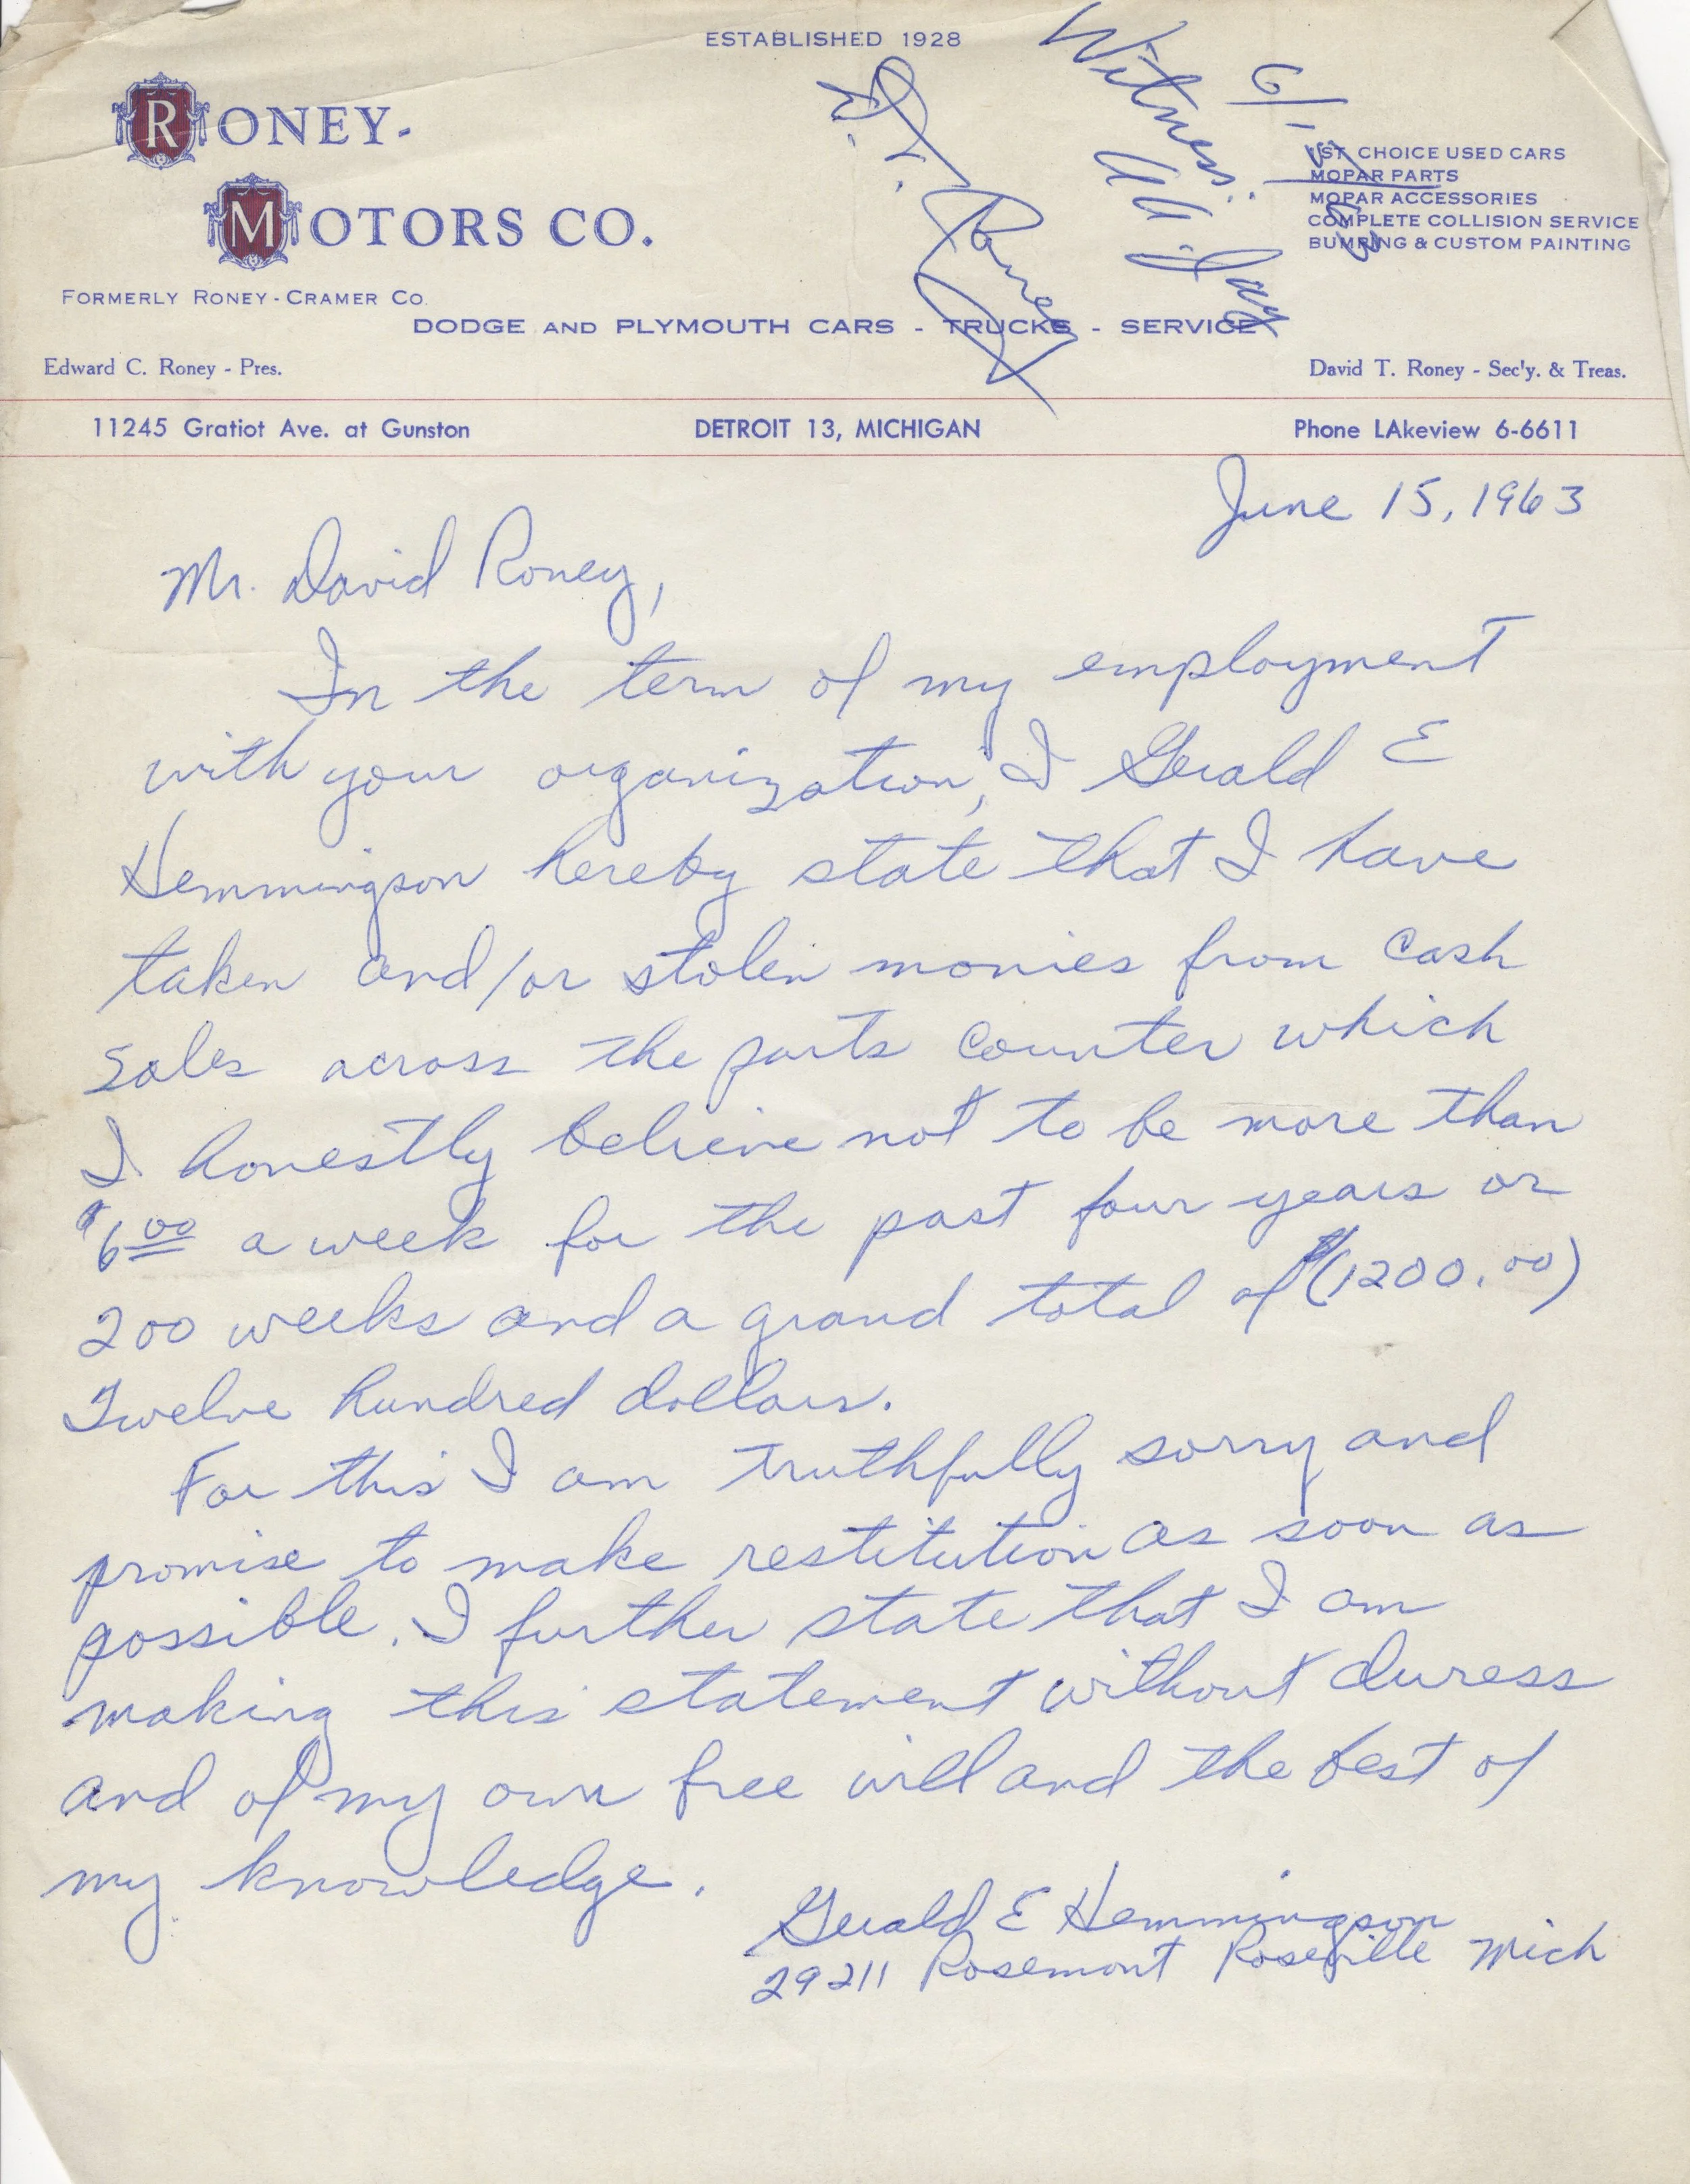 ESTABLISHED 1928
RONEY-
MOTORS CO.
1ST CHOICE USED CARS
MOPAR PARTS
MOPAR ACCESSORIES
COMPLETE COLLISION SERVICE
BUMPING & CUSTOM PAINTING
FORMERLY RONEY-CRAMER CO.
DODGE AND PLYMOUTH CARS - TRUCKS - SERVICE
Edward C. Roney - Pres.
David T. Roney - Sec'y. & Treas.
11245 Gratiot Ave. at Gunston
DETROIT 13, MICHIGAN
Phone LAkeview 6-6611
Witness:
Roney
June 15, 1963
Mr. David Roney,
In the term of my employment
with your organization, I Gerald E
Hemmingson hereby state that I have
taken and/or stolen monies from cash
sales across the parts counter which
I honestly believe not to be more than
$6.00 a week for the past four years or
200 weeks and a grand total of $(1200.00)
Twelve hundred dollars.
For this I am truthfully sorry and
promise to make restitution as soon as
possible. I further state that I am
making this statement without duress
and of my own free will and the best of
my knowledge.
Gerald E Hemmingson
29211 Rosemont Roseville Mich